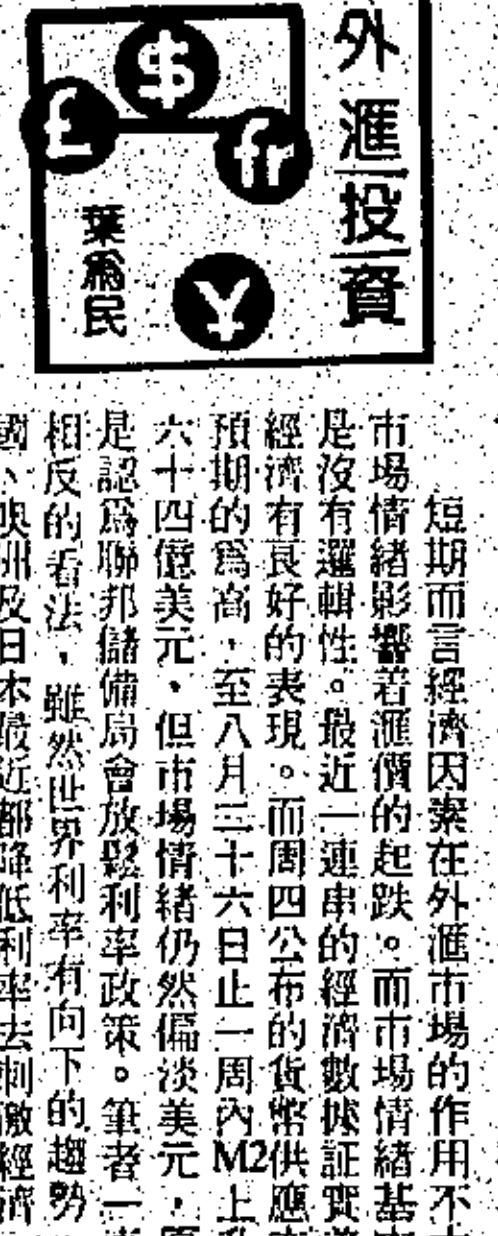 外滙投資
$
£
fr
¥
葉爲民
短期而言經濟因素在外滙市場的作用不
市場情緒影響着滙價的起跌。而市場情緒基
是沒有邏輯性。最近一連串的經濟數據証實
經濟有良好的表現。而周四公布的貨幣供應
預期的爲高，至八月二十六日止一周內M2上
六十四億美元，但市場情緒仍然偏淡美元，
是認爲聯邦儲備局會放鬆利率政策。筆者一
相反的看法，雖然世界利率有向下的趨勢
國、澳洲及日本最近都降低利率去刺激經濟